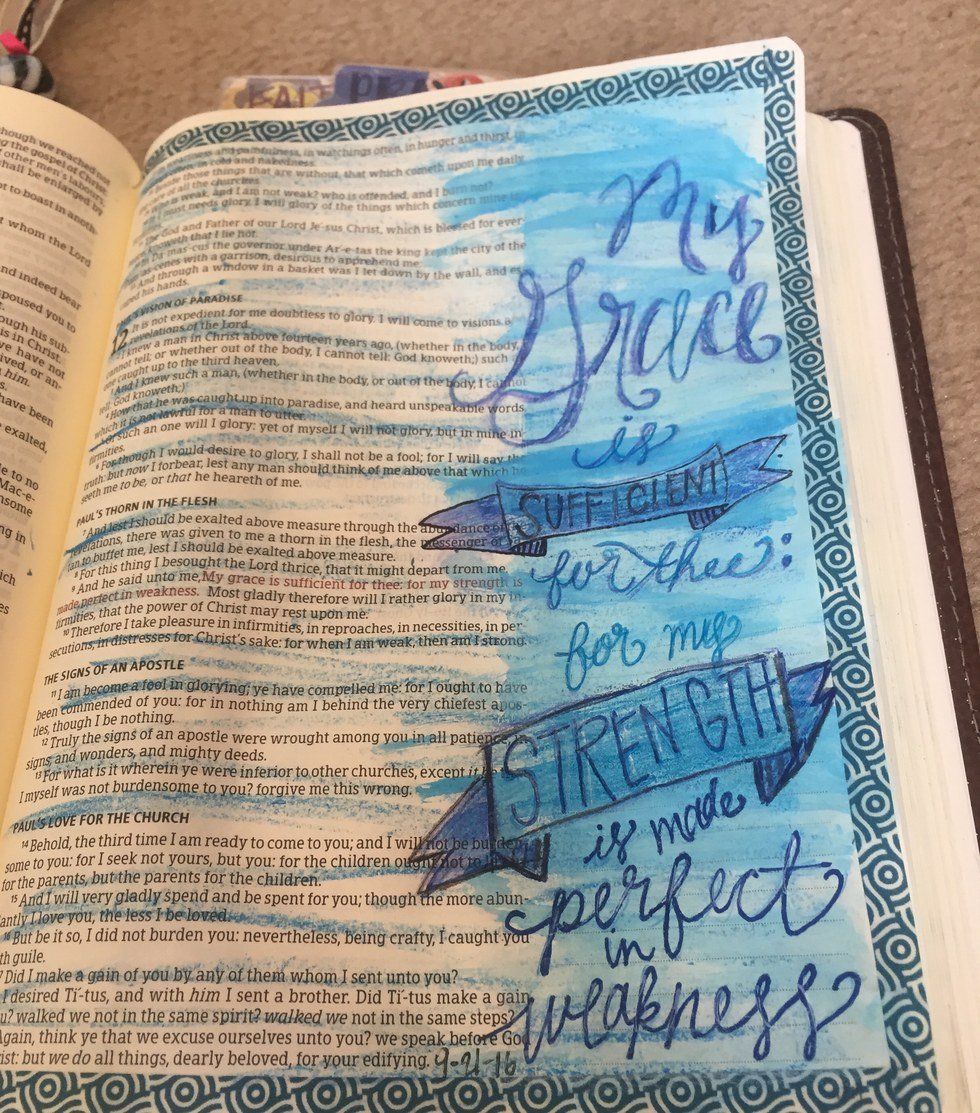 hough we reached not
ng the gospel of Christ:
f other men's labours;
hall be enlarged by
ot to boast in anoth-
t whom the Lord
nd indeed bear
spoused you to
ough his sub-
is in Christ.
ve have not
ived, or an-
him.
s.
have been
e exalted,
le to no
Mac-e-
nsome
ng in
ich
es
FAIT
PRA
and painfulness, in watchings often, in hunger and thirst, in
in cold and nakedness.
those things that are without, that which cometh upon me daily,
of all the churches.
is weak, and I am not weak? who is offended, and I burn not?
I must needs glory, I will glory of the things which concern mine
The God and Father of our Lord Je-sus Christ, which is blessed for ever-
knoweth that I lie not.
Da-mas-cus the governor under Ar-e-tas the king kept the city of the
as-cenes with a garrison, desirous to apprehend me:
And through a window in a basket was I let down by the wall, and es-
ped his hands.
VISION OF PARADISE
12 It is not expedient for me doubtless to glory. I will come to visions
revelations of the Lord.
I knew a man in Christ above fourteen years ago, (whether in the body,
cannot tell; or whether out of the body, I cannot tell: God knoweth;) such
one caught up to the third heaven.
And I knew such a man, (whether in the body, or out of the body, I cannot
tell: God knoweth;)
4 How that he was caught up into paradise, and heard unspeakable words,
which it is not lawful for a man to utter.
Of such an one will I glory: yet of myself I will not glory, but in mine in-
firmities.
6 For though I would desire to glory, I shall not be a fool; for I will say the
truth: but now I forbear, lest any man should think of me above that which he
seeth me to be, or that he heareth of me.
PAUL'S THORN IN THE FLESH
7 And lest I should be exalted above measure through the abundance of
revelations, there was given to me a thorn in the flesh, the messenger of
tan to buffet me, lest I should be exalted above measure.
8 For this thing I besought the Lord thrice, that it might depart from me.
9 And he said unto me, My grace is sufficient for thee: for my strength is
made perfect in weakness. Most gladly therefore will I rather glory in my in-
firmities, that the power of Christ may rest upon me.
10 Therefore I take pleasure in infirmities, in reproaches, in necessities, in per-
secutions, in distresses for Christ's sake: for when I am weak, then am I strong.
THE SIGNS OF AN APOSTLE
11 I am become a fool in glorying; ye have compelled me: for I ought to have
been commended of you: for in nothing am I behind the very chiefest apos-
tles, though I be nothing.
12 Truly the signs of an apostle were wrought among you in all patience, in
signs, and wonders, and mighty deeds.
13 For what is it wherein ye were inferior to other churches, except it be
I myself was not burdensome to you? forgive me this wrong.
PAUL'S LOVE FOR THE CHURCH
14 Behold, the third time I am ready to come to you; and I will not be burden-
some to you: for I seek not yours, but you: for the children ought not to
for the parents, but the parents for the children.
15 And I will very gladly spend and be spent for you; though the more abun-
antly I love you, the less I be loved.
16 But be it so, I did not burden you: nevertheless, being crafty, I caught you
th guile.
Did I make a gain of you by any of them whom I sent unto you?
I desired Ti-tus, and with him I sent a brother. Did Ti-tus make a gain
u? walked we not in the same spirit? walked we not in the same steps?
Again, think ye that we excuse ourselves unto you? we speak before God
ist: but we do all things, dearly beloved, for your edifying. 9-21-16
My
Grace
is
SUFFICIENT
for thee:
for my
STRENGTH
is made
perfect
in
weakness